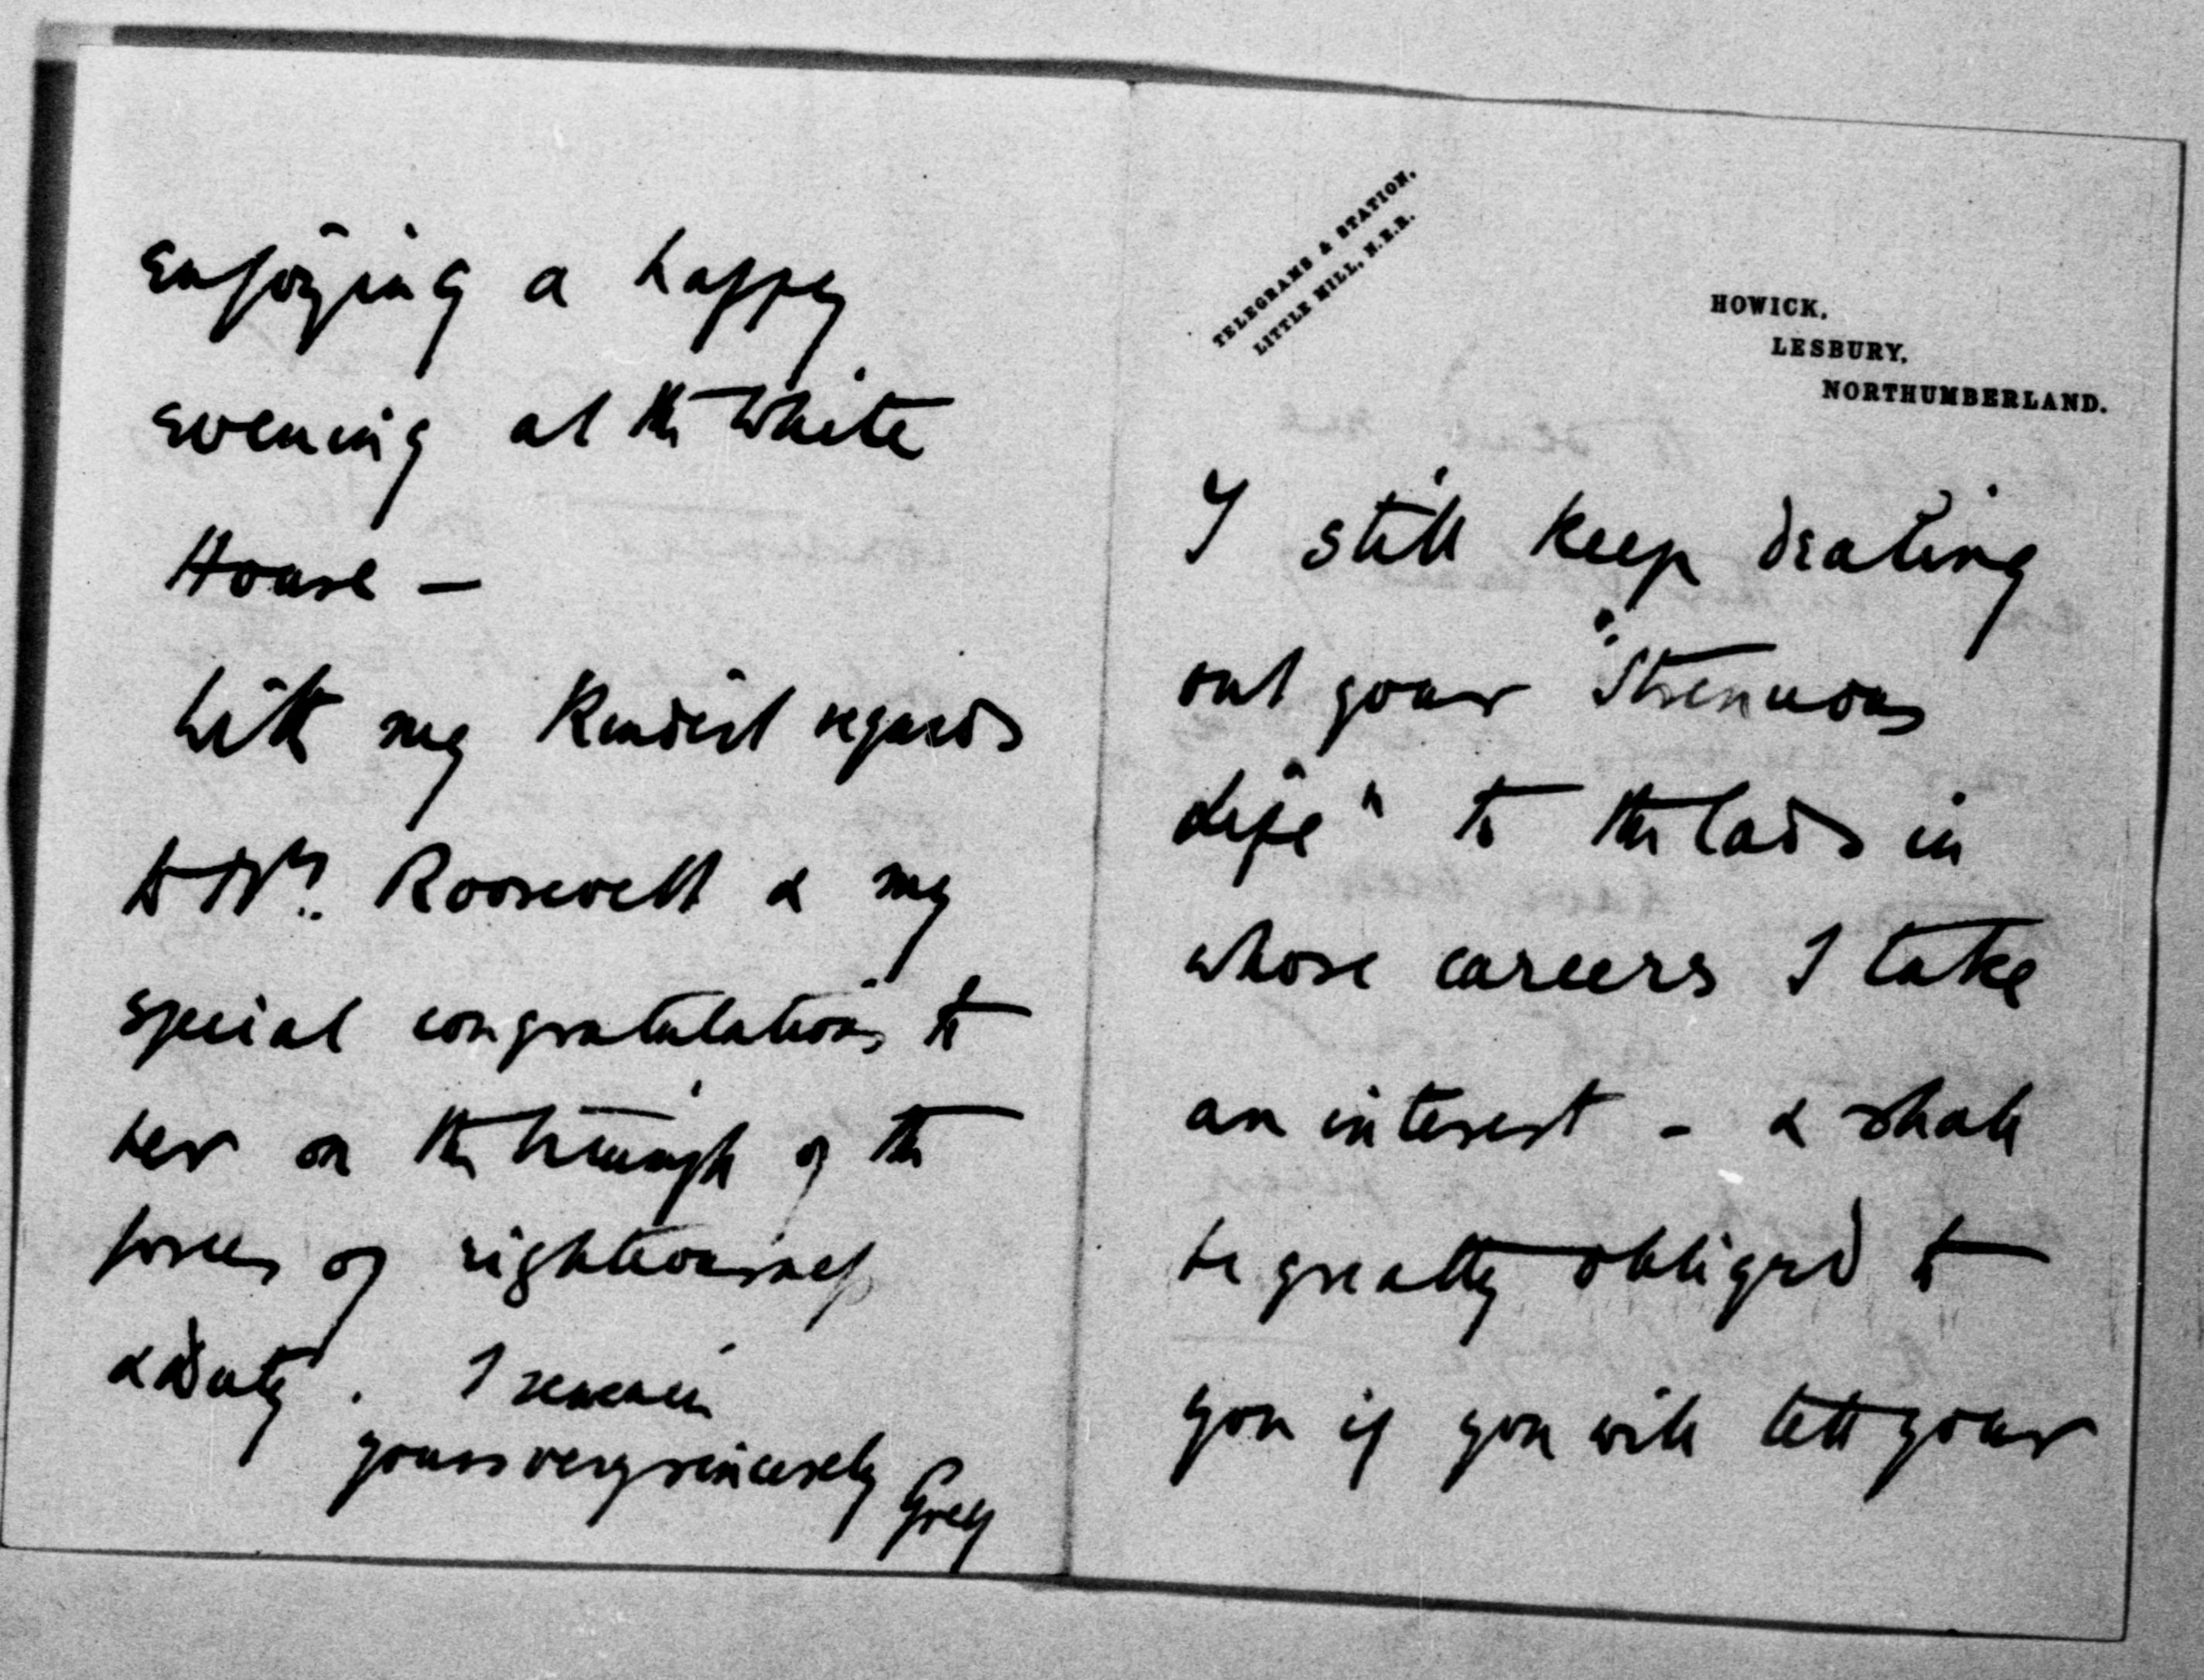 enjoying a happy
evening at the White
House —
With my kindest regards
to Mrs. Roosevelt & my
special congratulations to
her on the triumph of the
forces of righteousness
& Duty. I remain
yours very sincerely Grey
TELEGRAMS & STATION,
LITTLE MILL, N.E.R.
HOWICK,
LESBURY,
NORTHUMBERLAND.
I still keep dealing
out your "Strenuous
Life" to the lads in
whose careers I take
an interest - & shall
be greatly obliged to
you if you will tell your